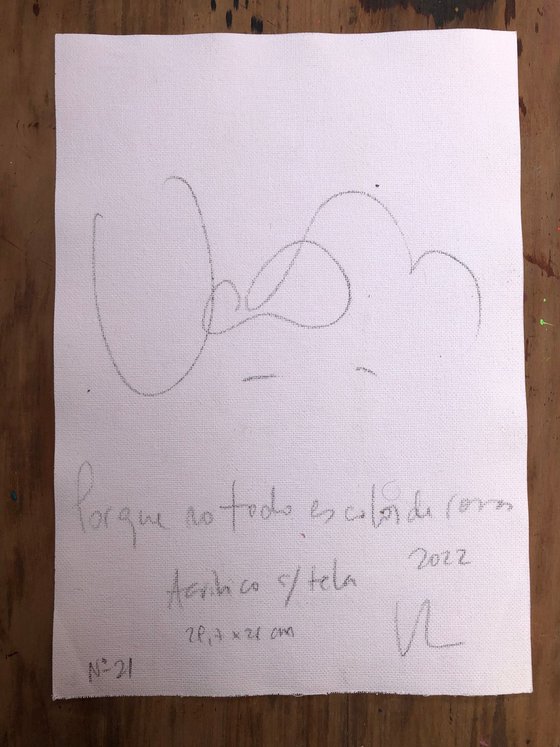 Porque no todo es color de rosas
2022
Acrílico s/tela
29,7 x 21 cm
Nº 21